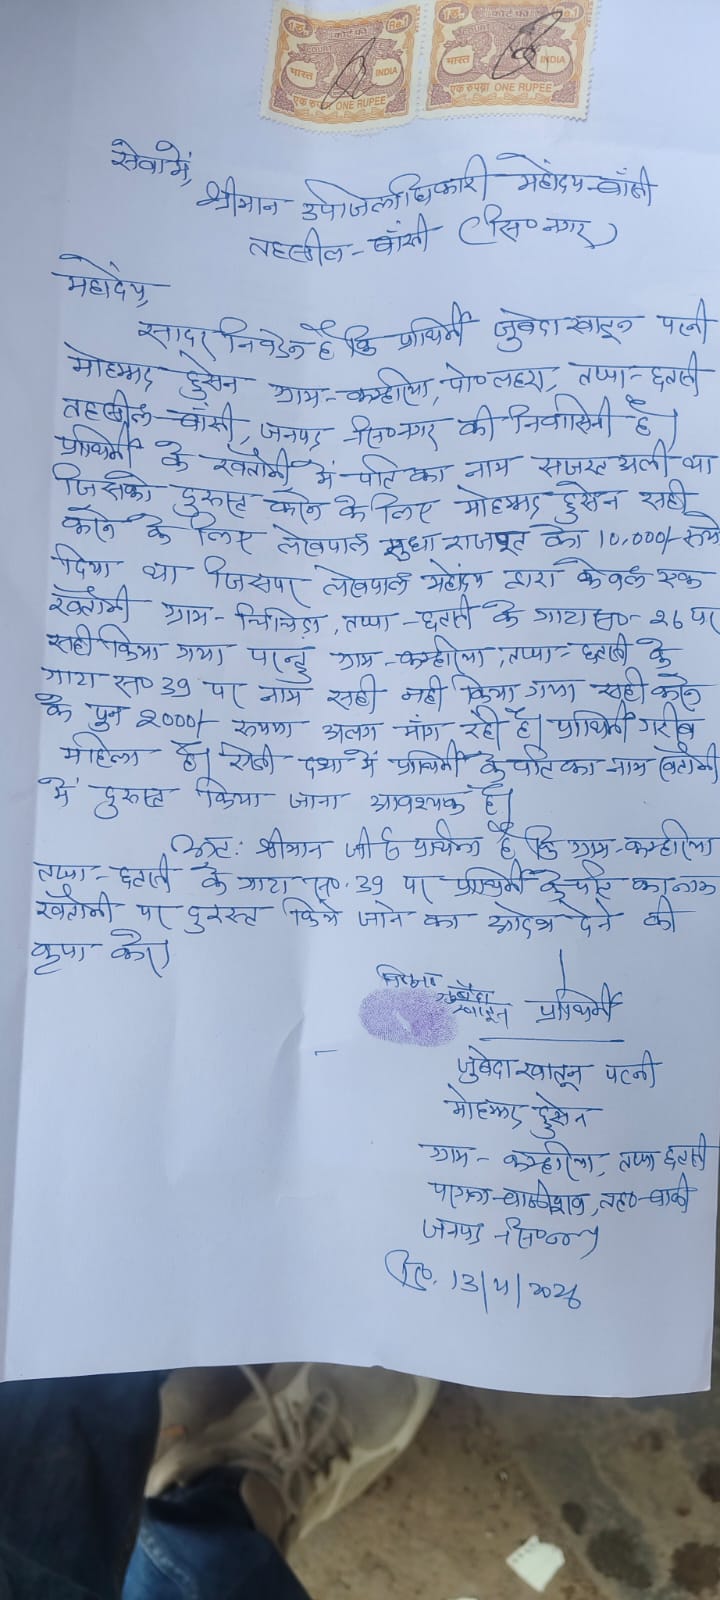 1रु. कोर्ट फी Re.1
भारत INDIA
एक रुपया ONE RUPEE
कोर्ट फी Re.1
भारत INDIA
एक रुपया ONE RUPEE
सेवा में,
श्रीमान उपजिलाधिकारी महोदय-बाँसी
तहसील-बाँसी (सि०नगर)
महोदय,
सादर निवेदन है कि प्रार्थिनी जुबेदा खातून पत्नी
मोहम्मद हुसेन ग्राम- पो० लहरा, तप्पा-
तहसील-बाँसी, जनपद सि०नगर की निवासिनी है।
प्रार्थिनी के खतौनी में पति का नाम अली था
जिसको दुरुस्त करने के लिए मोहम्मद हुसेन सही
करने के लिए लेखपाल सुधा राजपूत को 10,000/- रूपये
दिया था जिसपर लेखपाल महोदय द्वारा केवल एक
खतौनी ग्राम- तप्पा- के गाटा सं०-26 पर
सही किया गया परन्तु ग्राम- तप्पा- के
गाटा सं० 39 पर नाम सही नही किया गया सही करने
के पुन 2000/ रुपया अलग मांग रही है। प्रार्थिनी गरीब
महिला है। ऐसी दशा में प्रार्थिनी के पति का नाम खतौनी
में दुरुस्त किया जाना आवश्यक है।
अतः श्रीमान जी से प्रार्थना है कि ग्राम-
तप्पा- के गाटा सं०. 39 पर प्रार्थिनी के पति का नाम
खतौनी पर दुरस्त किये जाने का आदेश देने की
कृपा करें।
जुबेदा
खातून प्रार्थिनी
जुबेदा खातून पत्नी
मोहम्मद हुसेन
ग्राम- तप्पा
तह०-बाँसी
जनपद सि०नगर
दि०. 13/4/2026